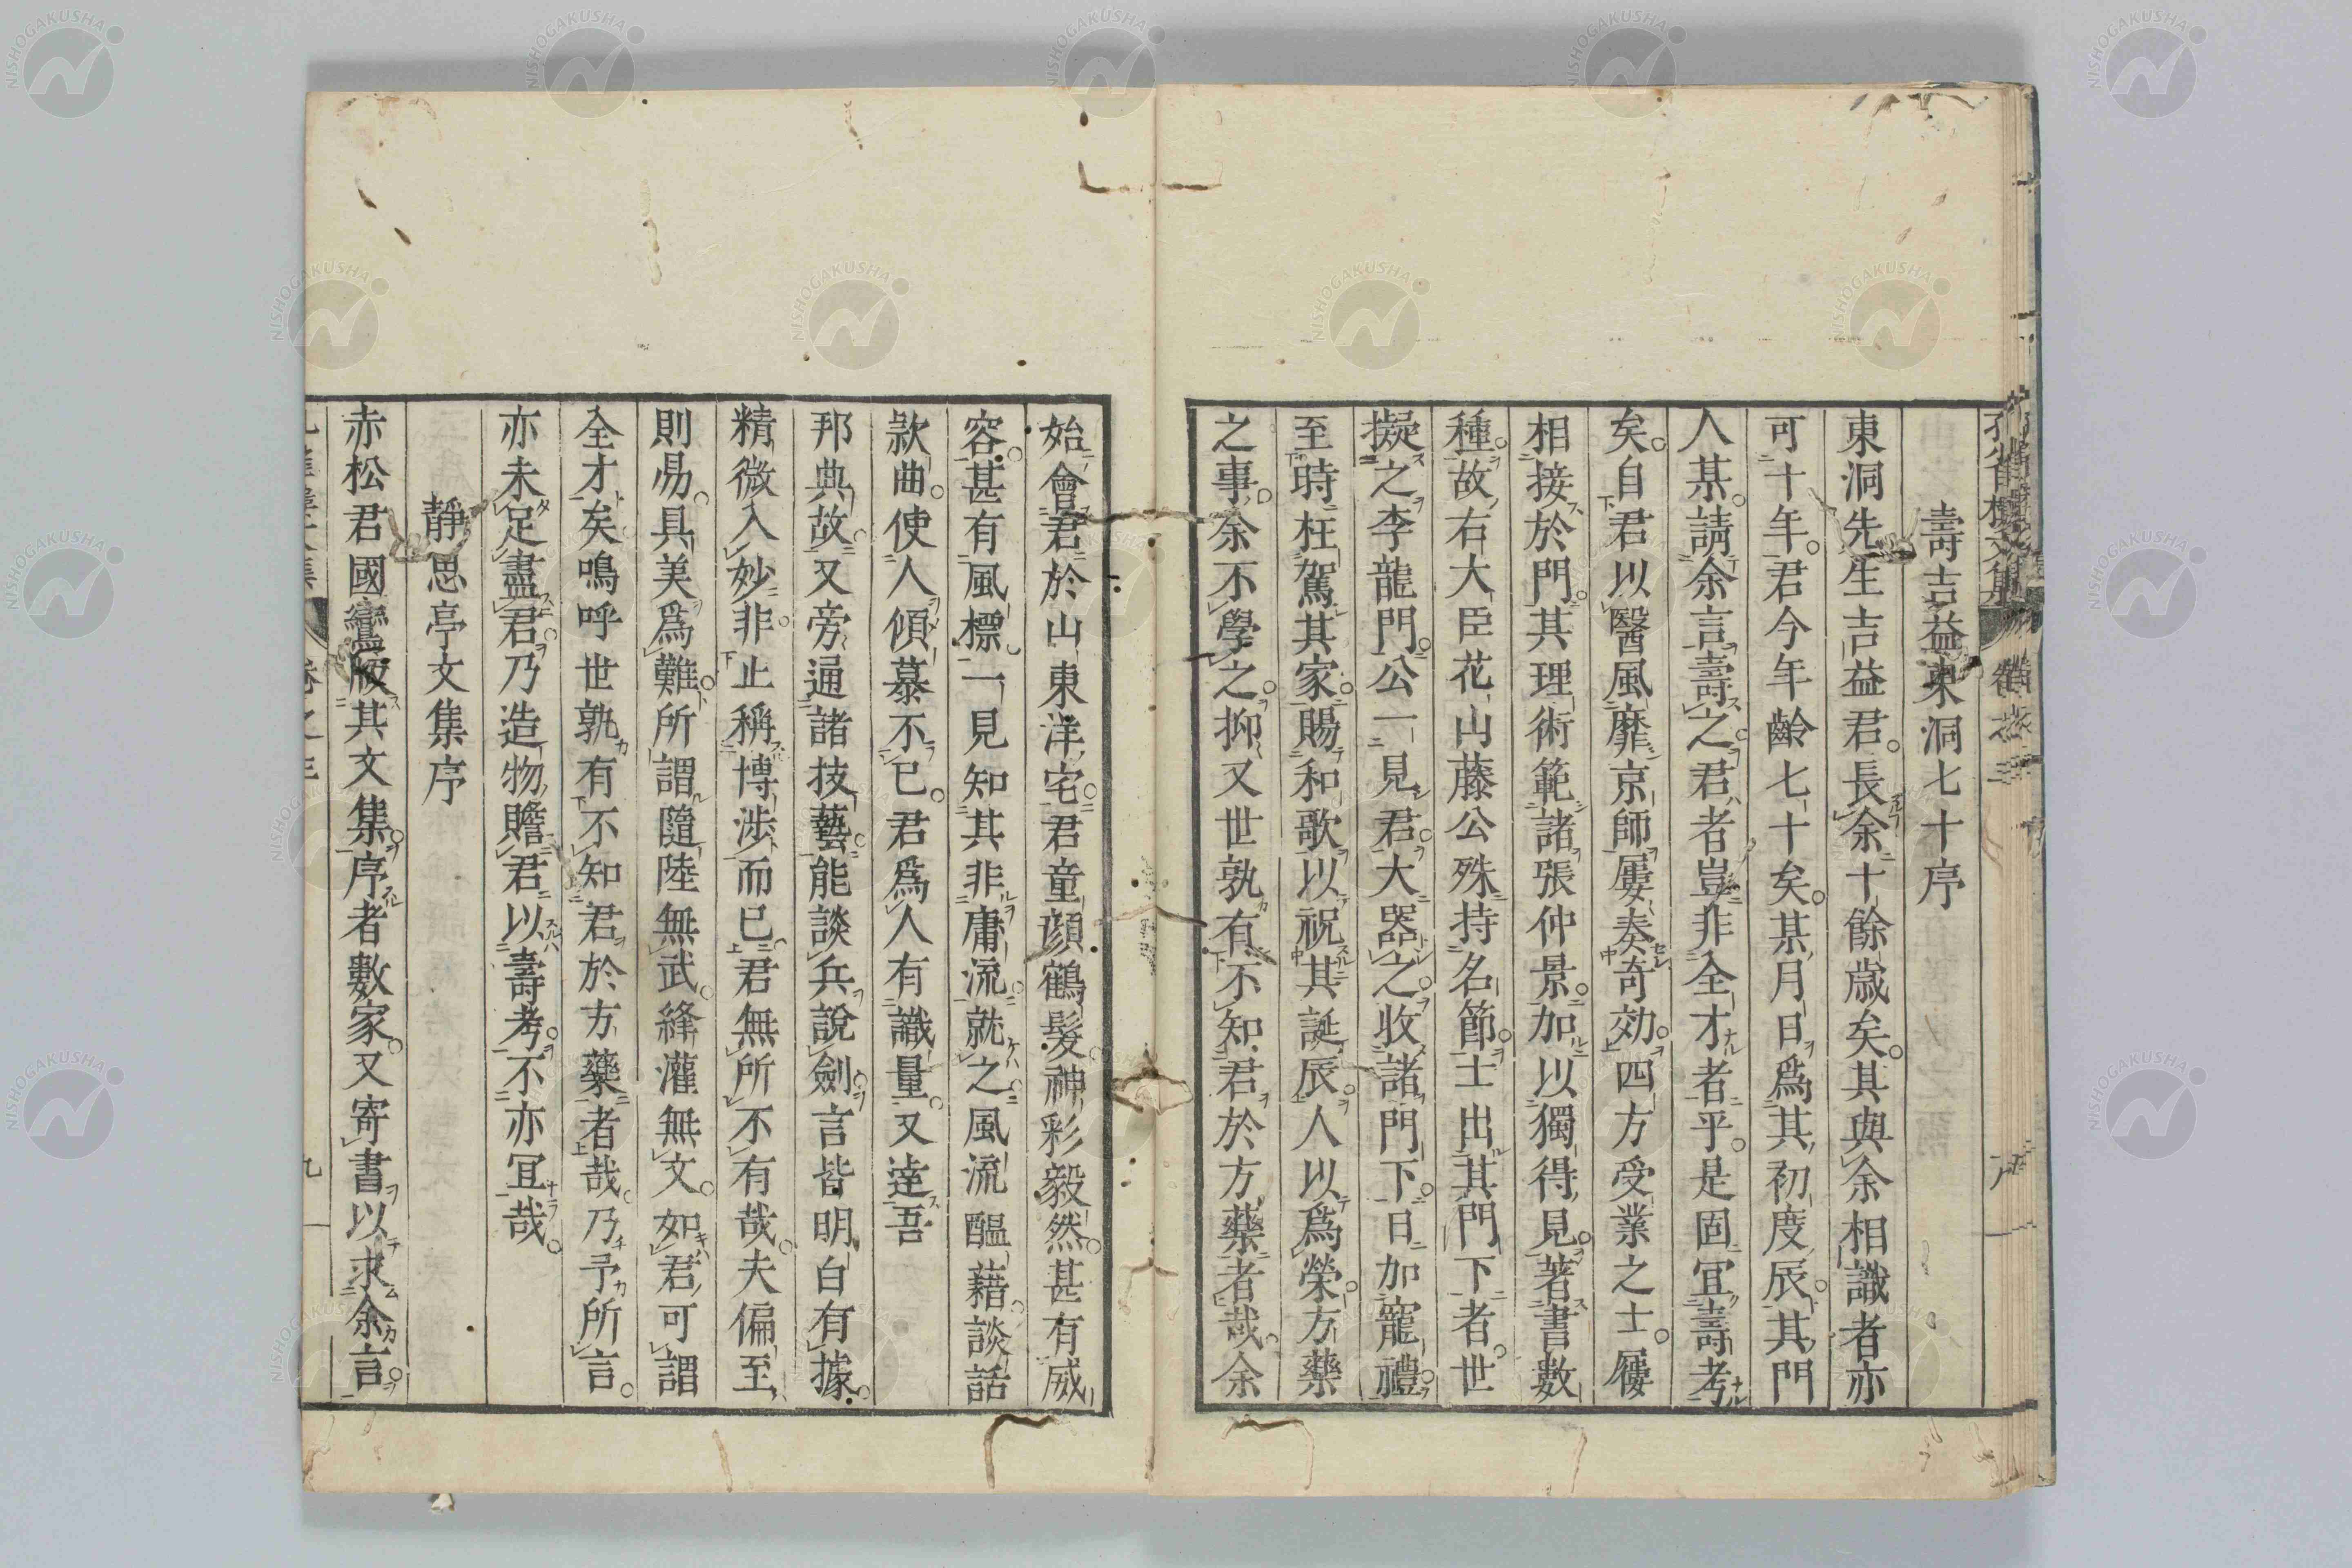 壽吉益東洞七十序
東洞先生吉益君。長余十餘歲矣。其與余相識者亦
可十年。君今年齡七十矣。某月日爲其初度辰。其門
人某。請余言壽之。君者豈非全才者乎。是固冝壽考
矣。自君以醫風靡京師屢奏奇効。四方受業之士。屨
相接於門。其理術範諸張仲景。加以獨得見。著書數
種。故右大臣花山藤公殊持名節。士出其門下者。世
擬之李龍門。公一見君。大器之。收諸門下。日加寵禮。
至時枉駕其家。賜和歌以祝其誕辰。人以爲榮。方藥
之事。余不學之。抑又世孰有不知君於方藥者哉。余
始會君於山東洋宅。君童顔鶴髮。神彩毅然。甚有威
容。甚有風標。一見知其非庸流。就之。風流醞藉。談話
款曲。使人傾慕不已。君爲人有識量。又達吾
邦典故。又旁通諸技藝。能談兵說劍。言皆明白有據。
精微入妙非。止稱博涉而已。君無所不有哉。夫偏至
則易。具美爲難。所謂隨陸無武。絳灌無文。如君可謂
全才矣。嗚呼世孰有不知君於方藥者哉。乃予所言。
亦未足盡君。乃造物贍君以壽考。不亦冝哉。
靜思亭文集序
赤松君國鸞版其文集。序者數家。又寄書以求余言。
卷之三
九
NISHOGAKUSHA